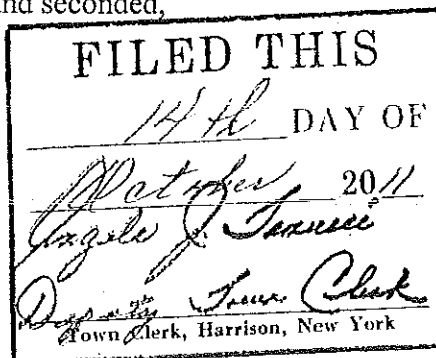 and seconded,
FILED THIS
14th DAY OF
October 2011
Angela J.
Deputy Town Clerk
Town Clerk, Harrison, New York